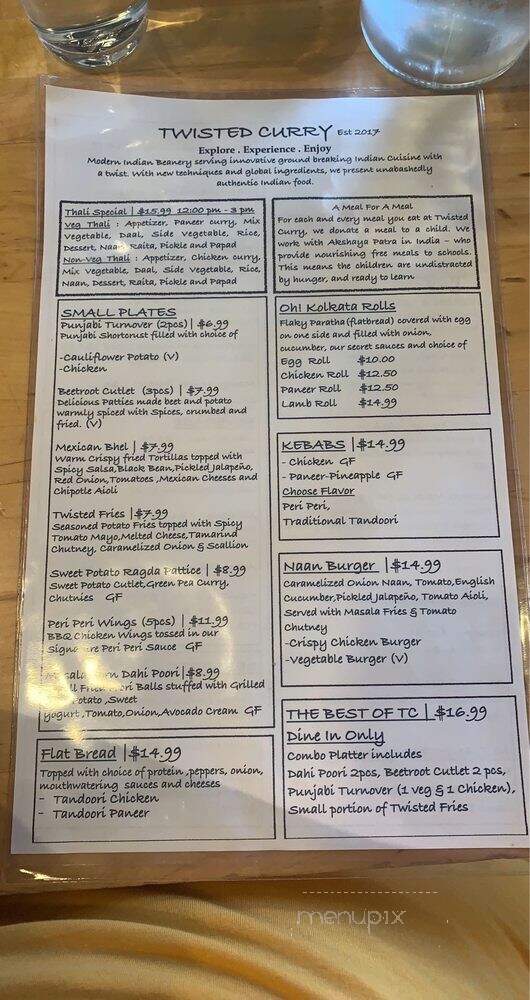 TWISTED CURRY Est 2017
Explore . Experience . Enjoy
Modern Indian Beanery serving innovative ground breaking Indian Cuisine with
a twist. With new techniques and global ingredients, we present unabashedly
authentic Indian food.
Thali Special | $15.99 12:00 pm - 3 pm
Veg Thali : Appetizer, Paneer curry, Mix
Vegetable, Daal, Side Vegetable, Rice,
Dessert, Naan, Raita, Pickle and Papad
Non-Veg Thali : Appetizer, Chicken curry,
Mix Vegetable, Daal, Side Vegetable, Rice,
Naan, Dessert, Raita, Pickle and Papad
SMALL PLATES
Punjabi Turnover (2pcs) | $6.99
Punjabi Shortcrust filled with choice of
-Cauliflower Potato (V)
-Chicken
Beetroot Cutlet (3pcs) | $7.99
Delicious Patties made beet and potato
warmly spiced with Spices, crumbed and
fried. (V)
Mexican Bhel | $7.99
Warm Crispy fried Tortillas topped with
Spicy Salsa, Black Bean, Pickled Jalapeño,
Red Onion, Tomatoes ,Mexican Cheeses and
Chipotle Aioli
Twisted Fries | $7.99
Seasoned Potato Fries topped with Spicy
Tomato Mayo, Melted Cheese, Tamarind
Chutney, Caramelized Onion & Scallion
Sweet Potato Ragda Pattice | $8.99
Sweet Potato Cutlet, Green Pea Curry,
Chutnies GF
Peri Peri Wings (5pcs) | $11.99
BBQ Chicken Wings tossed in our
Signature Peri Peri Sauce GF
Dahi Poori | $8.99
Balls stuffed with Grilled
Potato ,Sweet
yogurt ,Tomato, Onion, Avocado Cream GF
Flat Bread | $14.99
Topped with choice of protein ,peppers, onion,
mouthwatering sauces and cheeses
- Tandoori Chicken
- Tandoori Paneer
A Meal For A Meal
For each and every meal you eat at Twisted
Curry, we donate a meal to a child. We
work with Akshaya Patra in India – who
provide nourishing free meals to schools.
This means the children are undistracted
by hunger, and ready to learn
Oh! Kolkata Rolls
Flaky Paratha (flatbread) covered with egg
on one side and filled with onion,
cucumber, our secret sauces and choice of
Egg Roll $10.00
Chicken Roll $12.50
Paneer Roll $12.50
Lamb Roll $14.99
KEBABS | $14.99
- Chicken GF
- Paneer-Pineapple GF
Choose Flavor
Peri Peri,
Traditional Tandoori
Naan Burger | $14.99
Caramelized Onion Naan, Tomato, English
Cucumber, Pickled Jalapeño, Tomato Aioli,
Served with Masala Fries & Tomato
Chutney
-Crispy Chicken Burger
-Vegetable Burger (V)
THE BEST OF TC | $16.99
Dine In Only
Combo Platter includes
Dahi Poori 2pcs, Beetroot Cutlet 2 pcs,
Punjabi Turnover (1 veg & 1 Chicken),
Small portion of Twisted Fries
menupix